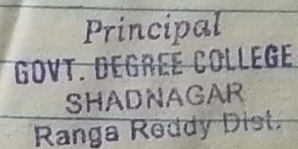 Principal
GOVT. DEGREE COLLEGE
SHADNAGAR
Ranga Reddy Dist.